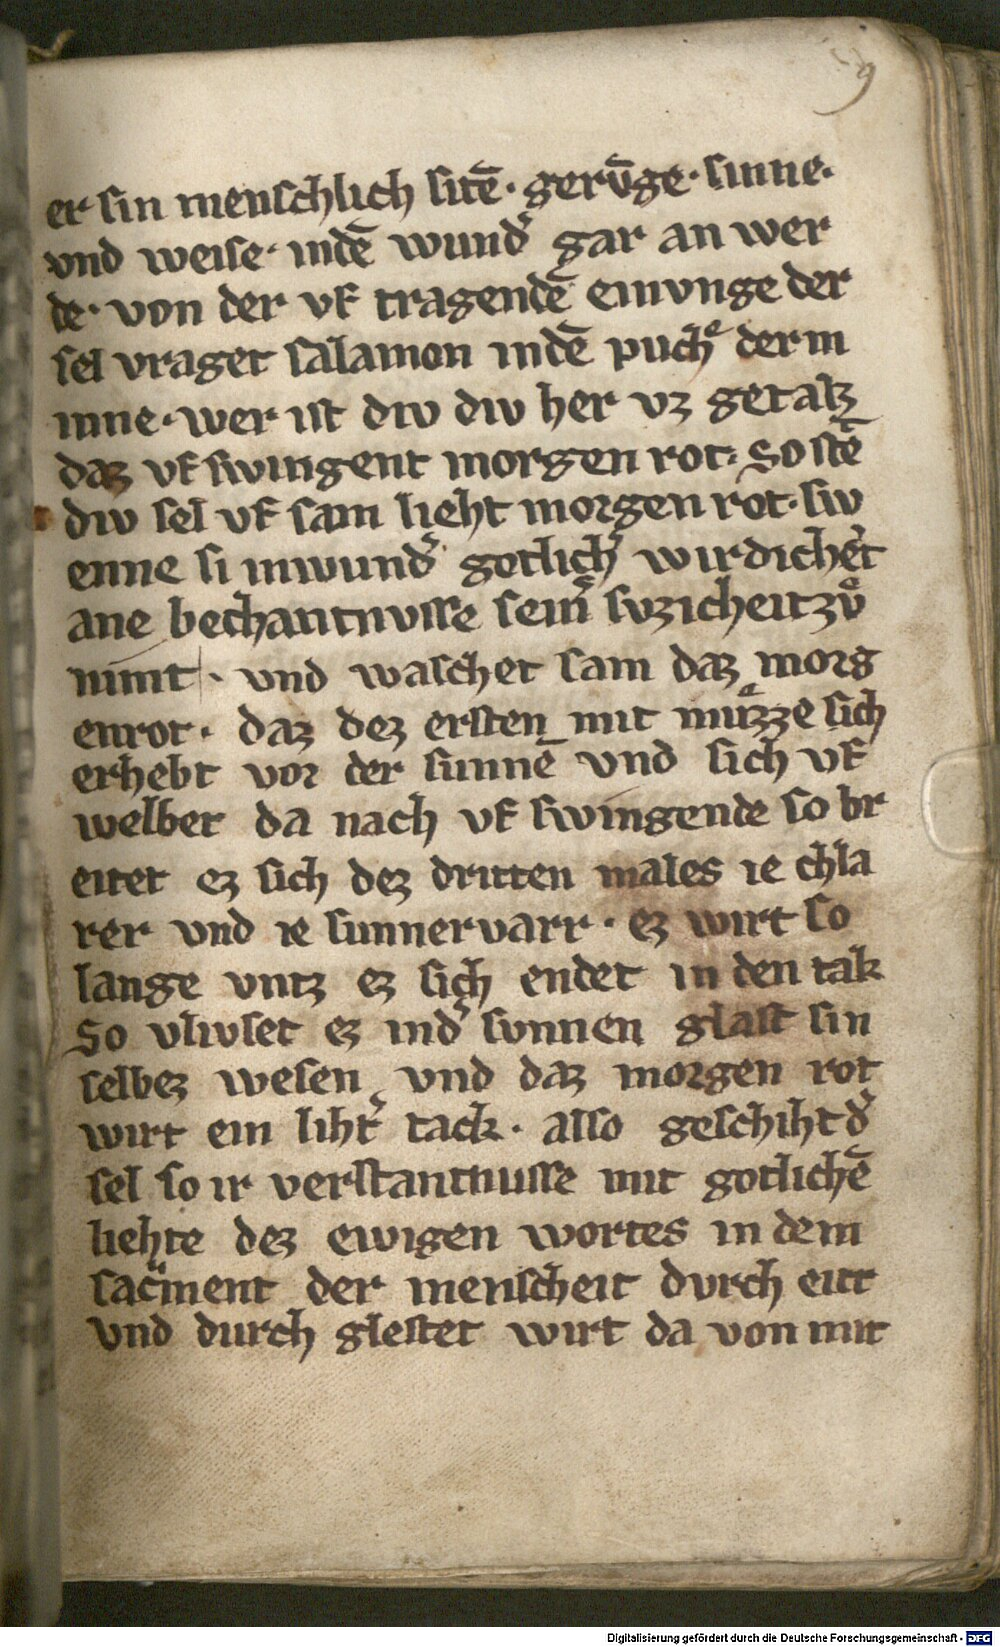 9
er sin menschlich sitē · gerv̄ge · sinne ·
vnd weise · indē wund͛ gar an wer
de · von der vf tragendē einvnge der
sel vraget salamon indē puchͤ der m
inne · wer ist div div her vz getalz
daz vf swingent morgen rot · So stē
div sel vf sam lieht morgen rot · sw
enne si inwund͛ gotlich͛ wirdicheit
ane bechantnvsse sein͛ svzicheit zvͦ
nimt · vnd waschet sam daz morg
enrot · daz dez ersten mit mvͤzze sich
erhebt vor der sunnē vnd sich vf
welbet da nach vf swingende so br
eitet ez sich dez dritten males ie chla
rer vnd ie sunnervarr · ez wirt so
lange vntz ez sich endet in den tak
So vlivset ez ind͛ svnnen glast sin
selbez wesen vnd daz morgen rot
wirt ein liht͛ tack · also geschiht d͛
sel so ir verstantnusse mit gotlichē
liehte dez ewigen wortes in dem
sac͛ment der menscheit dvrch eitt
vnd durch glestet wirt da von mit
Digitalisierung gefördert durch die Deutsche Forschungsgemeinschaft - DFG